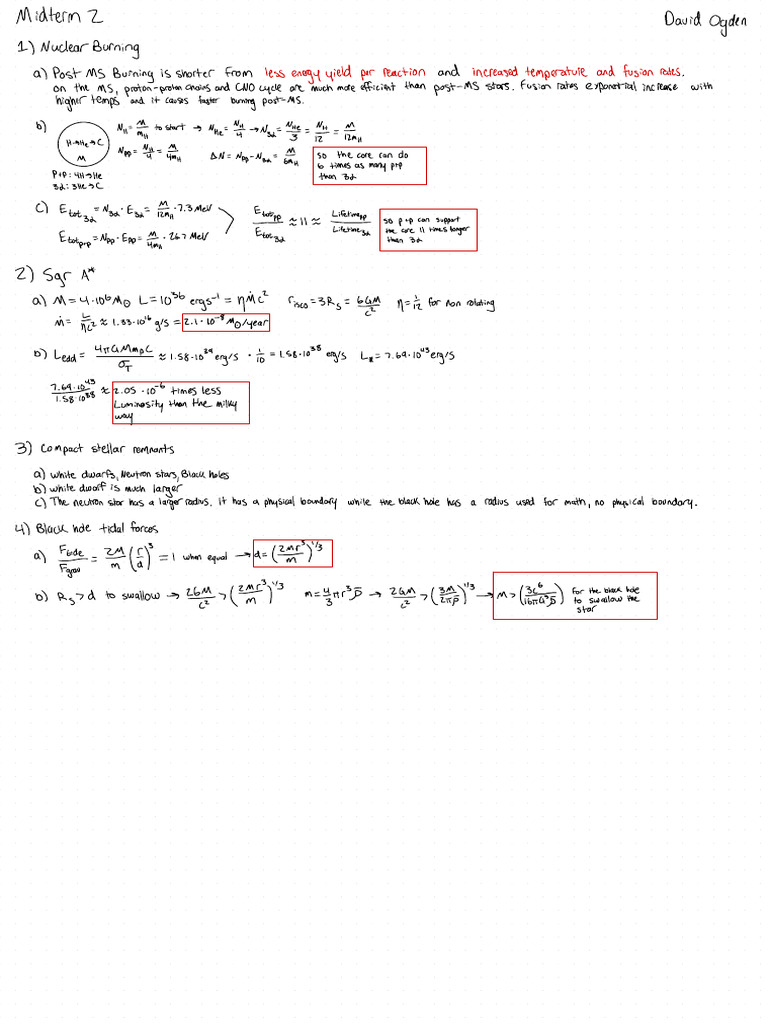 Midterm 2
David Ogden
1) Nuclear Burning
a) Post MS Burning is shorter from less energy yield per reaction and increased temperature and fusion rates.
on the MS, proton-proton chains and CNO cycle are much more efficient than post-MS stars. Fusion rates exponential increase with
higher temps and it causes faster burning post-MS.
b) H→He→C M
N_H = M/m_H to start → N_He = N_H/4 → N_3α = N_He/3 = N_H/12 = M/12m_H
N_pp = N_H/4 = M/4m_H ΔN = N_pp - N_3α = M/6m_H
so the core can do
6 times as many p+p
than 3α
P+P: 4H→He
3α: 3He→C
c) E_tot_3α = N_3α · E_3α = M/12m_H · 7.3 MeV
E_tot_p+p = N_pp · E_pp = M/4m_H · 26.7 MeV
E_tot_pp/E_tot_3α ≈ 11 ≈ Lifetime_pp/Lifetime_3α
so p+p can support
the core 11 times longer
than 3α
2) Sgr A*
a) M = 4·10^6 M_⊙ L = 10^36 erg s^-1 = ηṀc^2 r_isco = 3R_s = 6GM/c^2 η = 1/12 for non rotating
ṁ = L/ηc^2 ≈ 1.33·10^16 g/s = 2.1·10^-8 M_⊙/year
b) L_edd = 4πGMm_pC/σ_T ≈ 1.58·10^39 erg/s · 1/10 = 1.58·10^38 erg/s L_* = 7.69·10^43 erg/s
7.69·10^43/1.58·10^38 ≈ 2.05·10^-6 times less
Luminosity than the milky
way
3) Compact stellar remnants
a) white dwarfs, Neutron stars, Black holes
b) white dwarf is much larger
c) The neutron star has a larger radius. it has a physical boundary while the black hole has a radius used for math, no physical boundary.
4) Black hole tidal forces
a) F_tide/F_grav = 2M/m (r/d)^3 = 1 when equal → d = (2Mr^3/m)^1/3
b) R_s > d to swallow → 2GM/c^2 > (2Mr^3/m)^1/3 m = 4/3 πr^3 ρ̄ → 2GM/c^2 > (3M/2πρ̄)^1/3 → M > (3c^6/16πG^3ρ̄) for the black hole
to swallow the
star